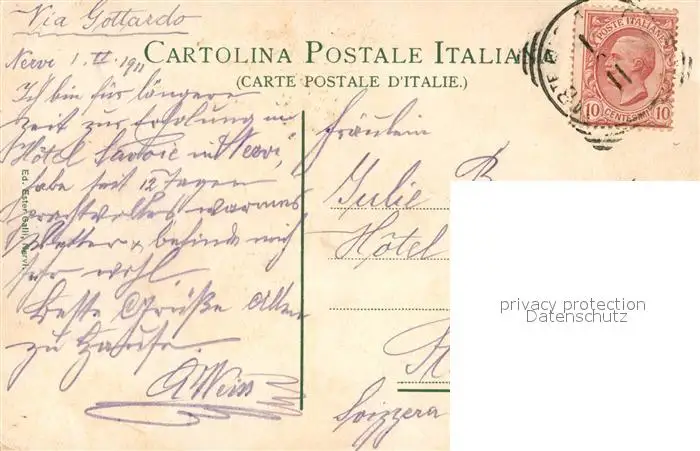 Via Gottardo
Nervi 1. II. 1911
CARTOLINA POSTALE ITALIANA
(CARTE POSTALE D'ITALIE.)
POSTE ITALIANE
10 CENTESIMI 10
Ich bin für längere
Zeit zur Erholung im
Hôtel Savoie in "Nervi",
habe seit 12 Tagen
prachtvolles warmes
Wetter & befinde mich
sehr wohl.
Beste Grüße Allen
zu Hause.
AWeiss
Ed. Ester Galli, Nervi.
Fräulein
Julie
Hôtel
Svizzera
privacy protection
Datenschutz